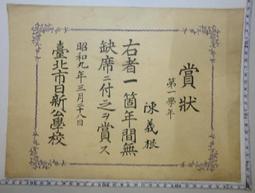 賞狀
第一學年
陳義根
右者一箇年間無
缺席ニ付之ヲ賞ス
昭和九年三月二十八日
臺北市日新公學校